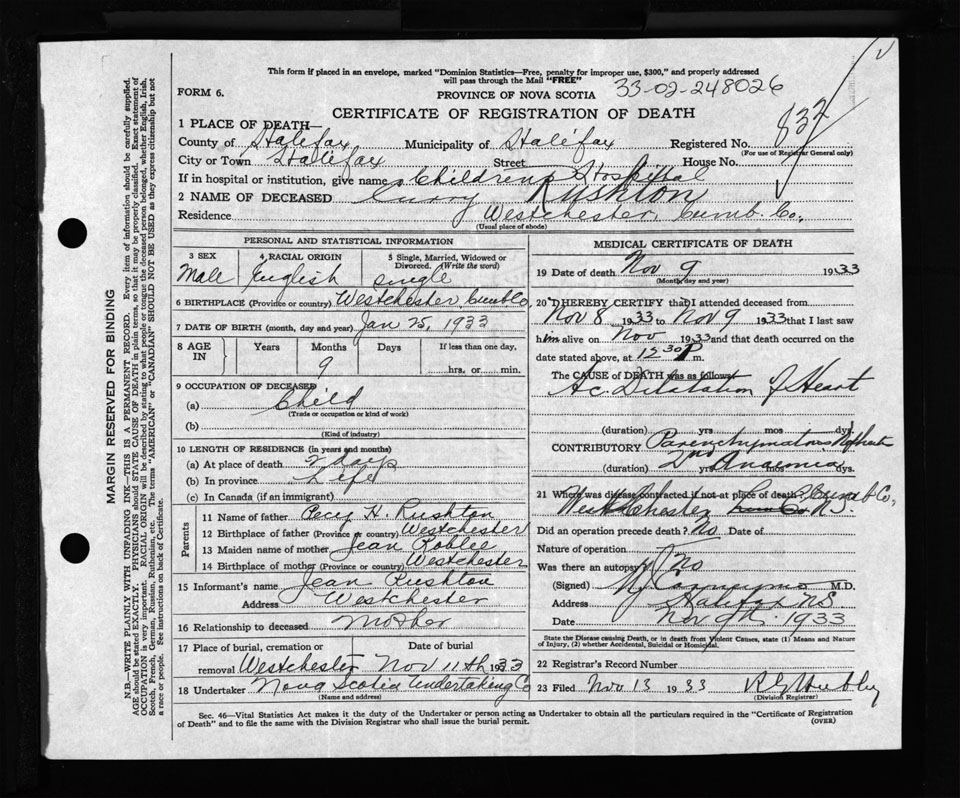 This form if placed in an envelope, marked "Dominion Statistics—Free, penalty for improper use, $300," and properly addressed
will pass through the Mail "FREE"
FORM 6.
PROVINCE OF NOVA SCOTIA 33-02-248026
CERTIFICATE OF REGISTRATION OF DEATH
1 PLACE OF DEATH—
County of Halifax Municipality of Halifax Registered No. 832
(For use of Registrar General only)
City or Town Halifax Street House No.
If in hospital or institution, give name Childrens Hospital
2 NAME OF DECEASED Curry Rushton
Residence Westchester, Cumb. Co.,
(Usual place of abode)
PERSONAL AND STATISTICAL INFORMATION
3 SEX 4 RACIAL ORIGIN 5 Single, Married, Widowed or Divorced. (Write the word)
Male English Single
6 BIRTHPLACE (Province or country) Westchester, Cumb Co,
7 DATE OF BIRTH (month, day and year) Jan 25, 1933
8 AGE IN Years Months Days If less than one day,
9 hrs. or min.
9 OCCUPATION OF DECEASED
(a) Child
(Trade or occupation or kind of work)
(b)
(Kind of industry)
10 LENGTH OF RESIDENCE (in years and months)
(a) At place of death 2 days
(b) In province Life
(c) In Canada (if an immigrant)
Parents
11 Name of father H. Rushton
12 Birthplace of father (Province or country) Westchester
13 Maiden name of mother Jean
14 Birthplace of mother (Province or country) Westchester
15 Informant's name Jean Rushton
Address Westchester
16 Relationship to deceased Mother
17 Place of burial, cremation or removal Date of burial
Westchester Nov 11th 1933
18 Undertaker Nova Scotia Undertaking Co
(Name and address)
MEDICAL CERTIFICATE OF DEATH
19 Date of death Nov 9 1933
(Month, day and year)
20 I HEREBY CERTIFY that I attended deceased from
Nov 8 1933 to Nov 9 1933 that I last saw
him alive on Nov 1933 and that death occurred on the
date stated above, at m.
The CAUSE of DEATH was as follows
Ac. Dilatation of Heart
(duration) yrs mos dys.
CONTRIBUTORY Parenchymatous
(duration) 2nd Anaemia yrs. mos dys.
21 Where was disease contracted if not at place of death?
Westchester N.S.
Did an operation precede death? No Date of
Nature of operation
Was there an autopsy? No
(Signed) M.D.
Address Halifax NS
Date Nov 9th 1933
State the Disease causing Death, or in death from Violent Causes, state (1) Means and Nature
of Injury, (2) whether Accidental, Suicidal or Homicidal.
22 Registrar's Record Number
23 Filed Nov 13 1933
(Division Registrar)
Sec. 46—Vital Statistics Act makes it the duty of the Undertaker or person acting as Undertaker to obtain all the particulars required in the "Certificate of Registration
of Death" and to file the same with the Division Registrar who shall issue the burial permit. (OVER)
MARGIN RESERVED FOR BINDING
N.B.—WRITE PLAINLY WITH UNFADING INK—THIS IS A PERMANENT RECORD. Every item of information should be carefully supplied.
AGE should be stated EXACTLY. PHYSICIANS should STATE CAUSE OF DEATH in plain terms, so that it may be properly classified. Exact statement of
OCCUPATION is very important. RACIAL ORIGIN will be described by stating to what people or race the deceased person belonged, whether English, Irish,
Scotch, French, German, Russian, Ruthenian, etc. The terms "AMERICAN" or "CANADIAN" SHOULD NOT BE USED as they express citizenship but not
a race or people. See instructions on back of Certificate.